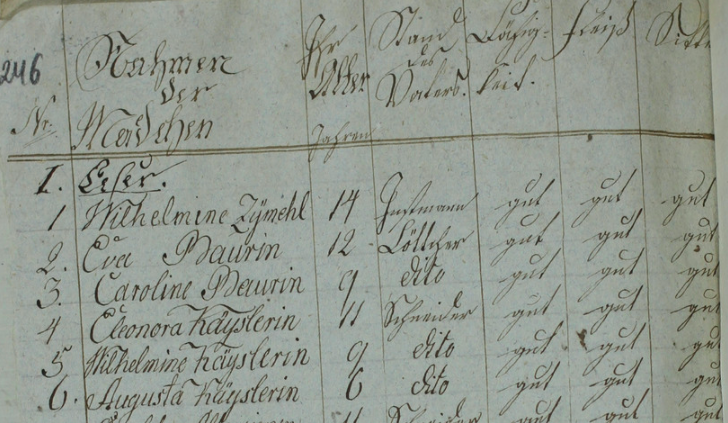 246
Nr. Nahmen der Mädchen Ihr Alter Jahren Stand des Vaters. Fähigkeit. Fleiß Sitte
I. Leser.
1 Wilhelmine Zÿmehl 14 Instmann gut gut gut
2. Eva Baurin 12 Böttcher gut gut gut
3. Caroline Baurin 9 dito gut gut gut
4 Eleonora Käyslerin 11 Schneider gut gut gut
5 Wilhelmine Käyslerin 9 dito gut gut gut
6. Augusta Käyslerin 6 dito gut gut gut
11 Schneider gut gut gut